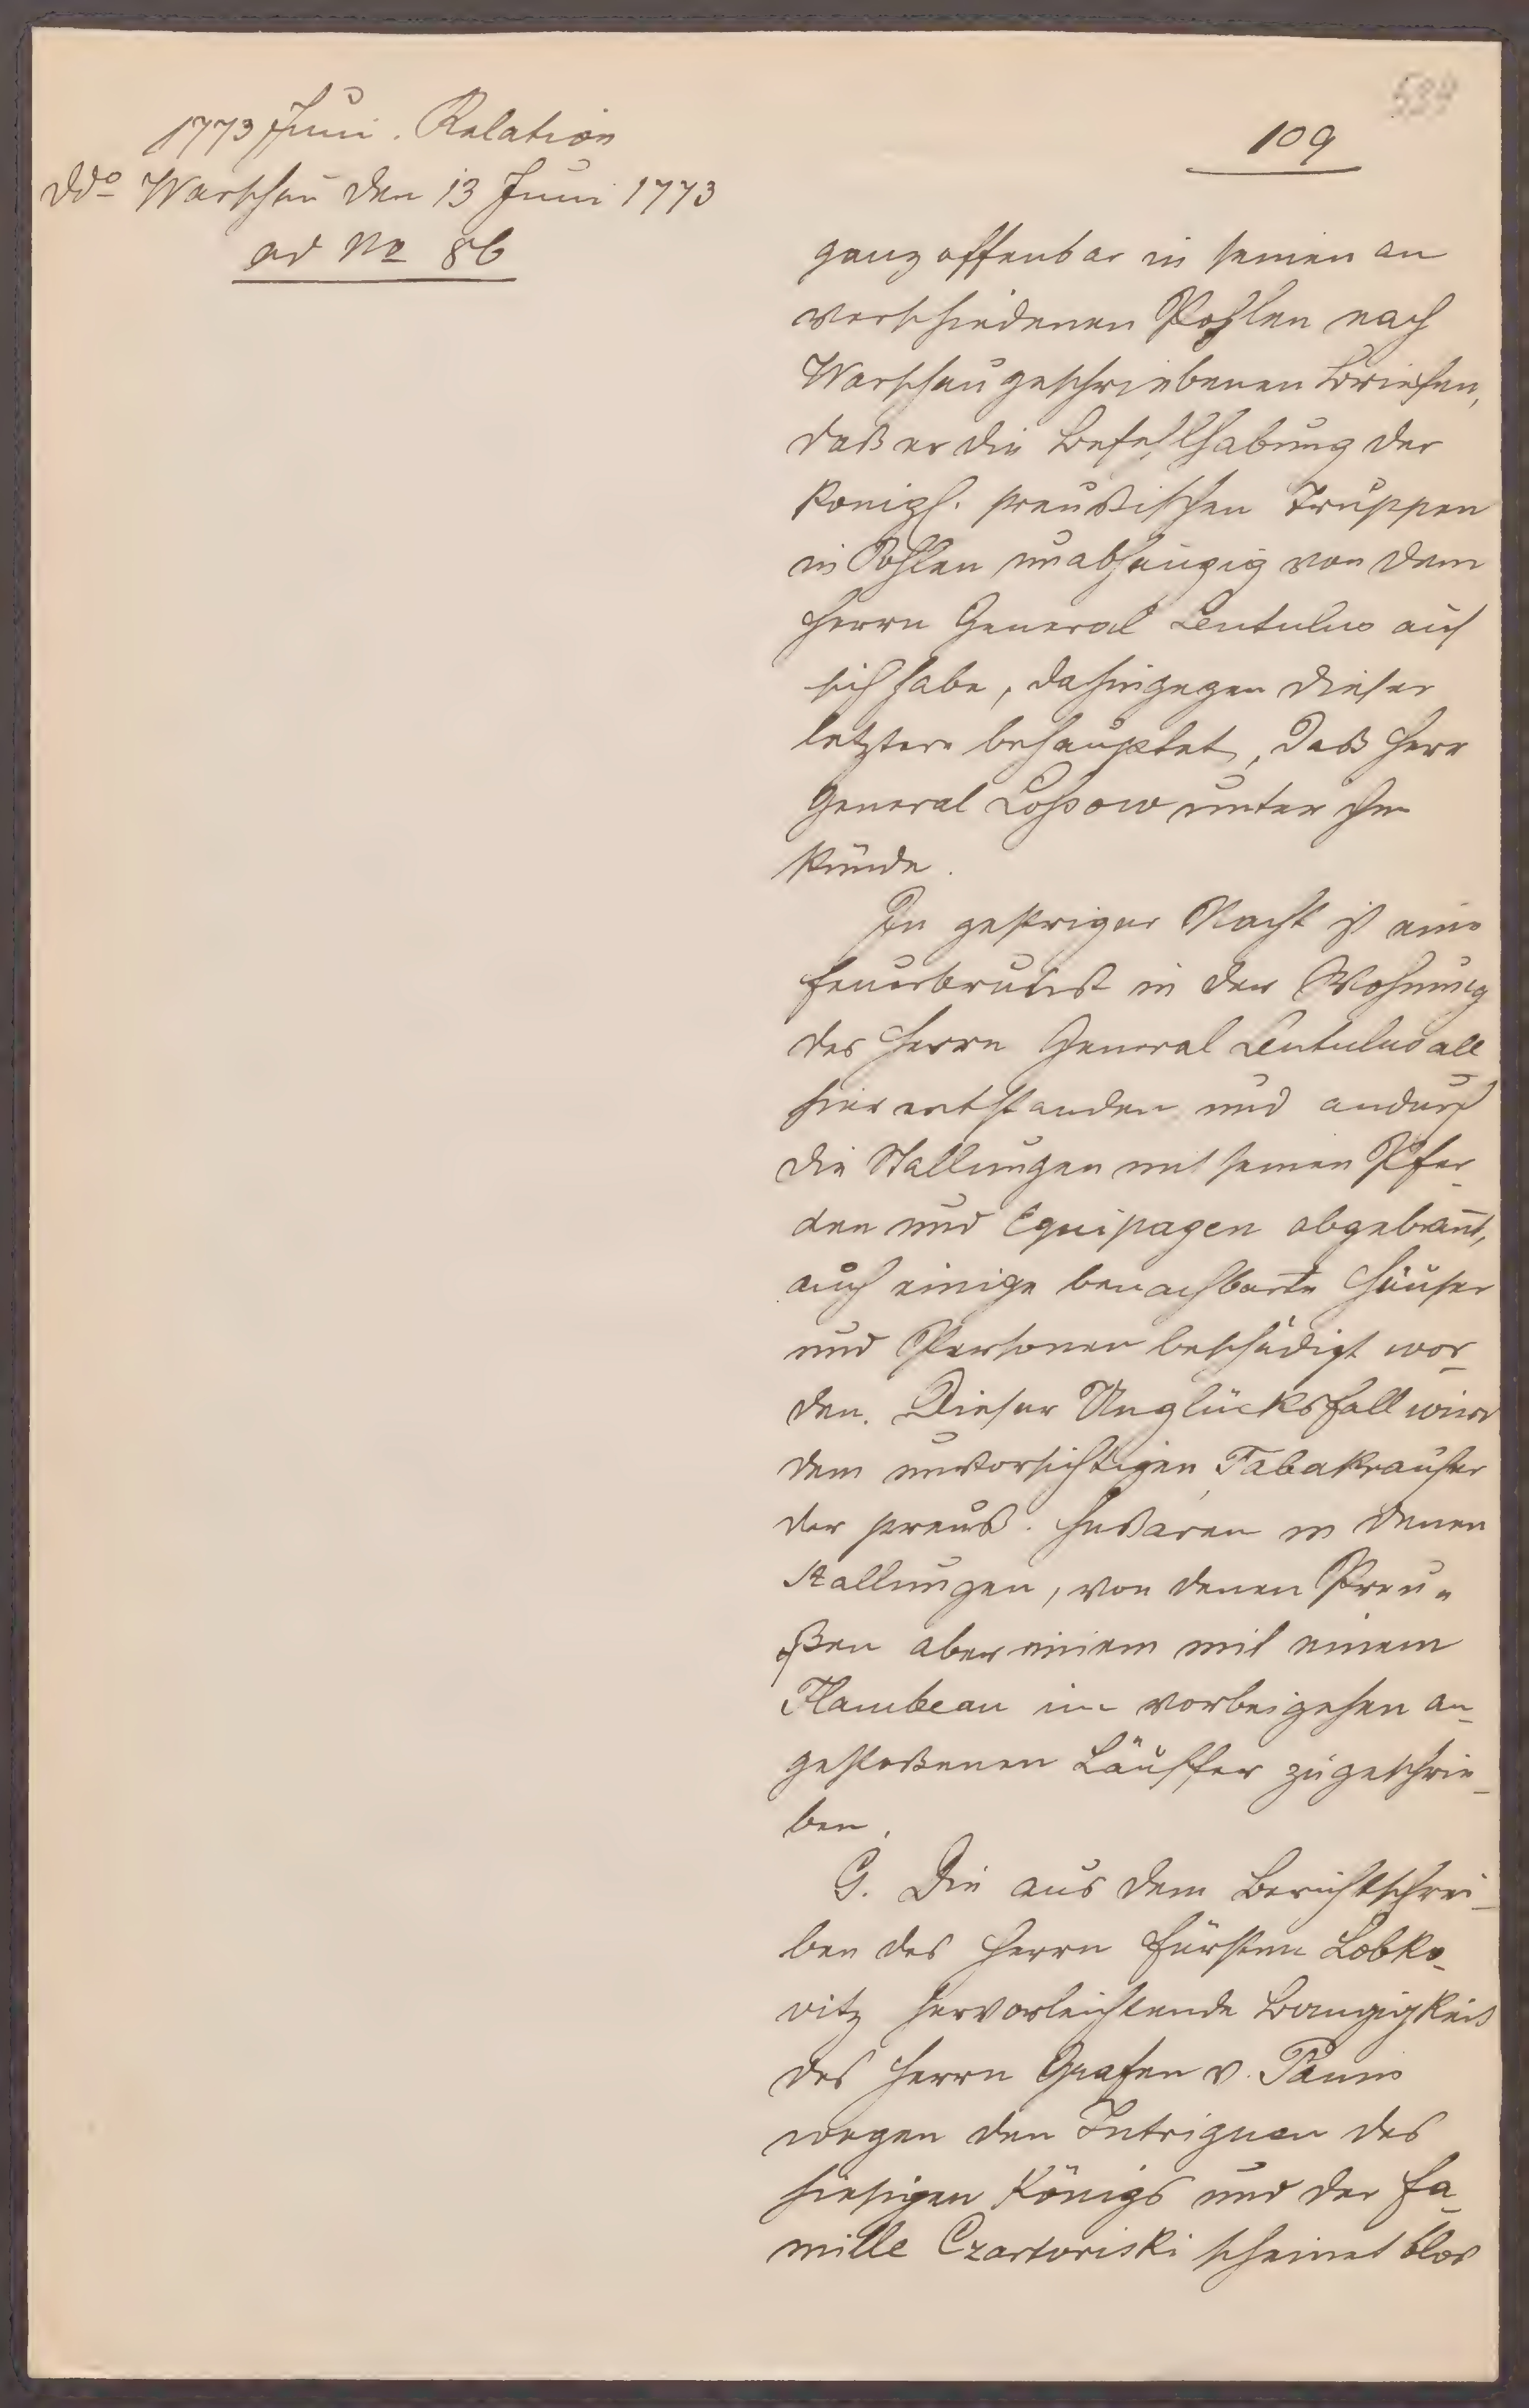 539
109
1773 Juni. Relation
ddo Warschau den 13 Juni 1773
ad No 86
ganz offenbar in seinen an
verschiedenen Pohlen nach
Warschau geschriebenen Briefen,
daß er die Befehlhabung der
Königl. preußischen Truppen
in Pohlen unabhängig von dem
Herrn General Lentulus auf
sich habe, dahingegen dieser
letztere behauptet, daß Herr
General Loßow unter ihm
stünde.
In gestriger Nacht ist eine
Feuersbrunst in der Wohnung
des Herrn General Lentulus all
hier entstanden und andurch
die Stallungen mit seinen Pfer-
den und Equipagen abgebrañt,
auch einige benachbarte Häuser
und Personen beschädigt wor-
den. Dieser Unglücksfall wird
dem unvorsichtigen Tabakraucher
der preuß. Hußaren in denen
Stallungen, von denen Preu-
ßen aber einem mit einem
Flambeau im vorbeigehen an-
gestoßenen Läuffer zugeschrie-
ben.
G. Die aus dem Berichtschrei-
ben des Herrn Fürsten Lobko-
vitz hervorleuchtende Bangigkeit
des Herrn Grafen v. Panin
wegen den Intriguen des
hiesigen Königs und der Fa-
mille Czartoriski scheinet blos